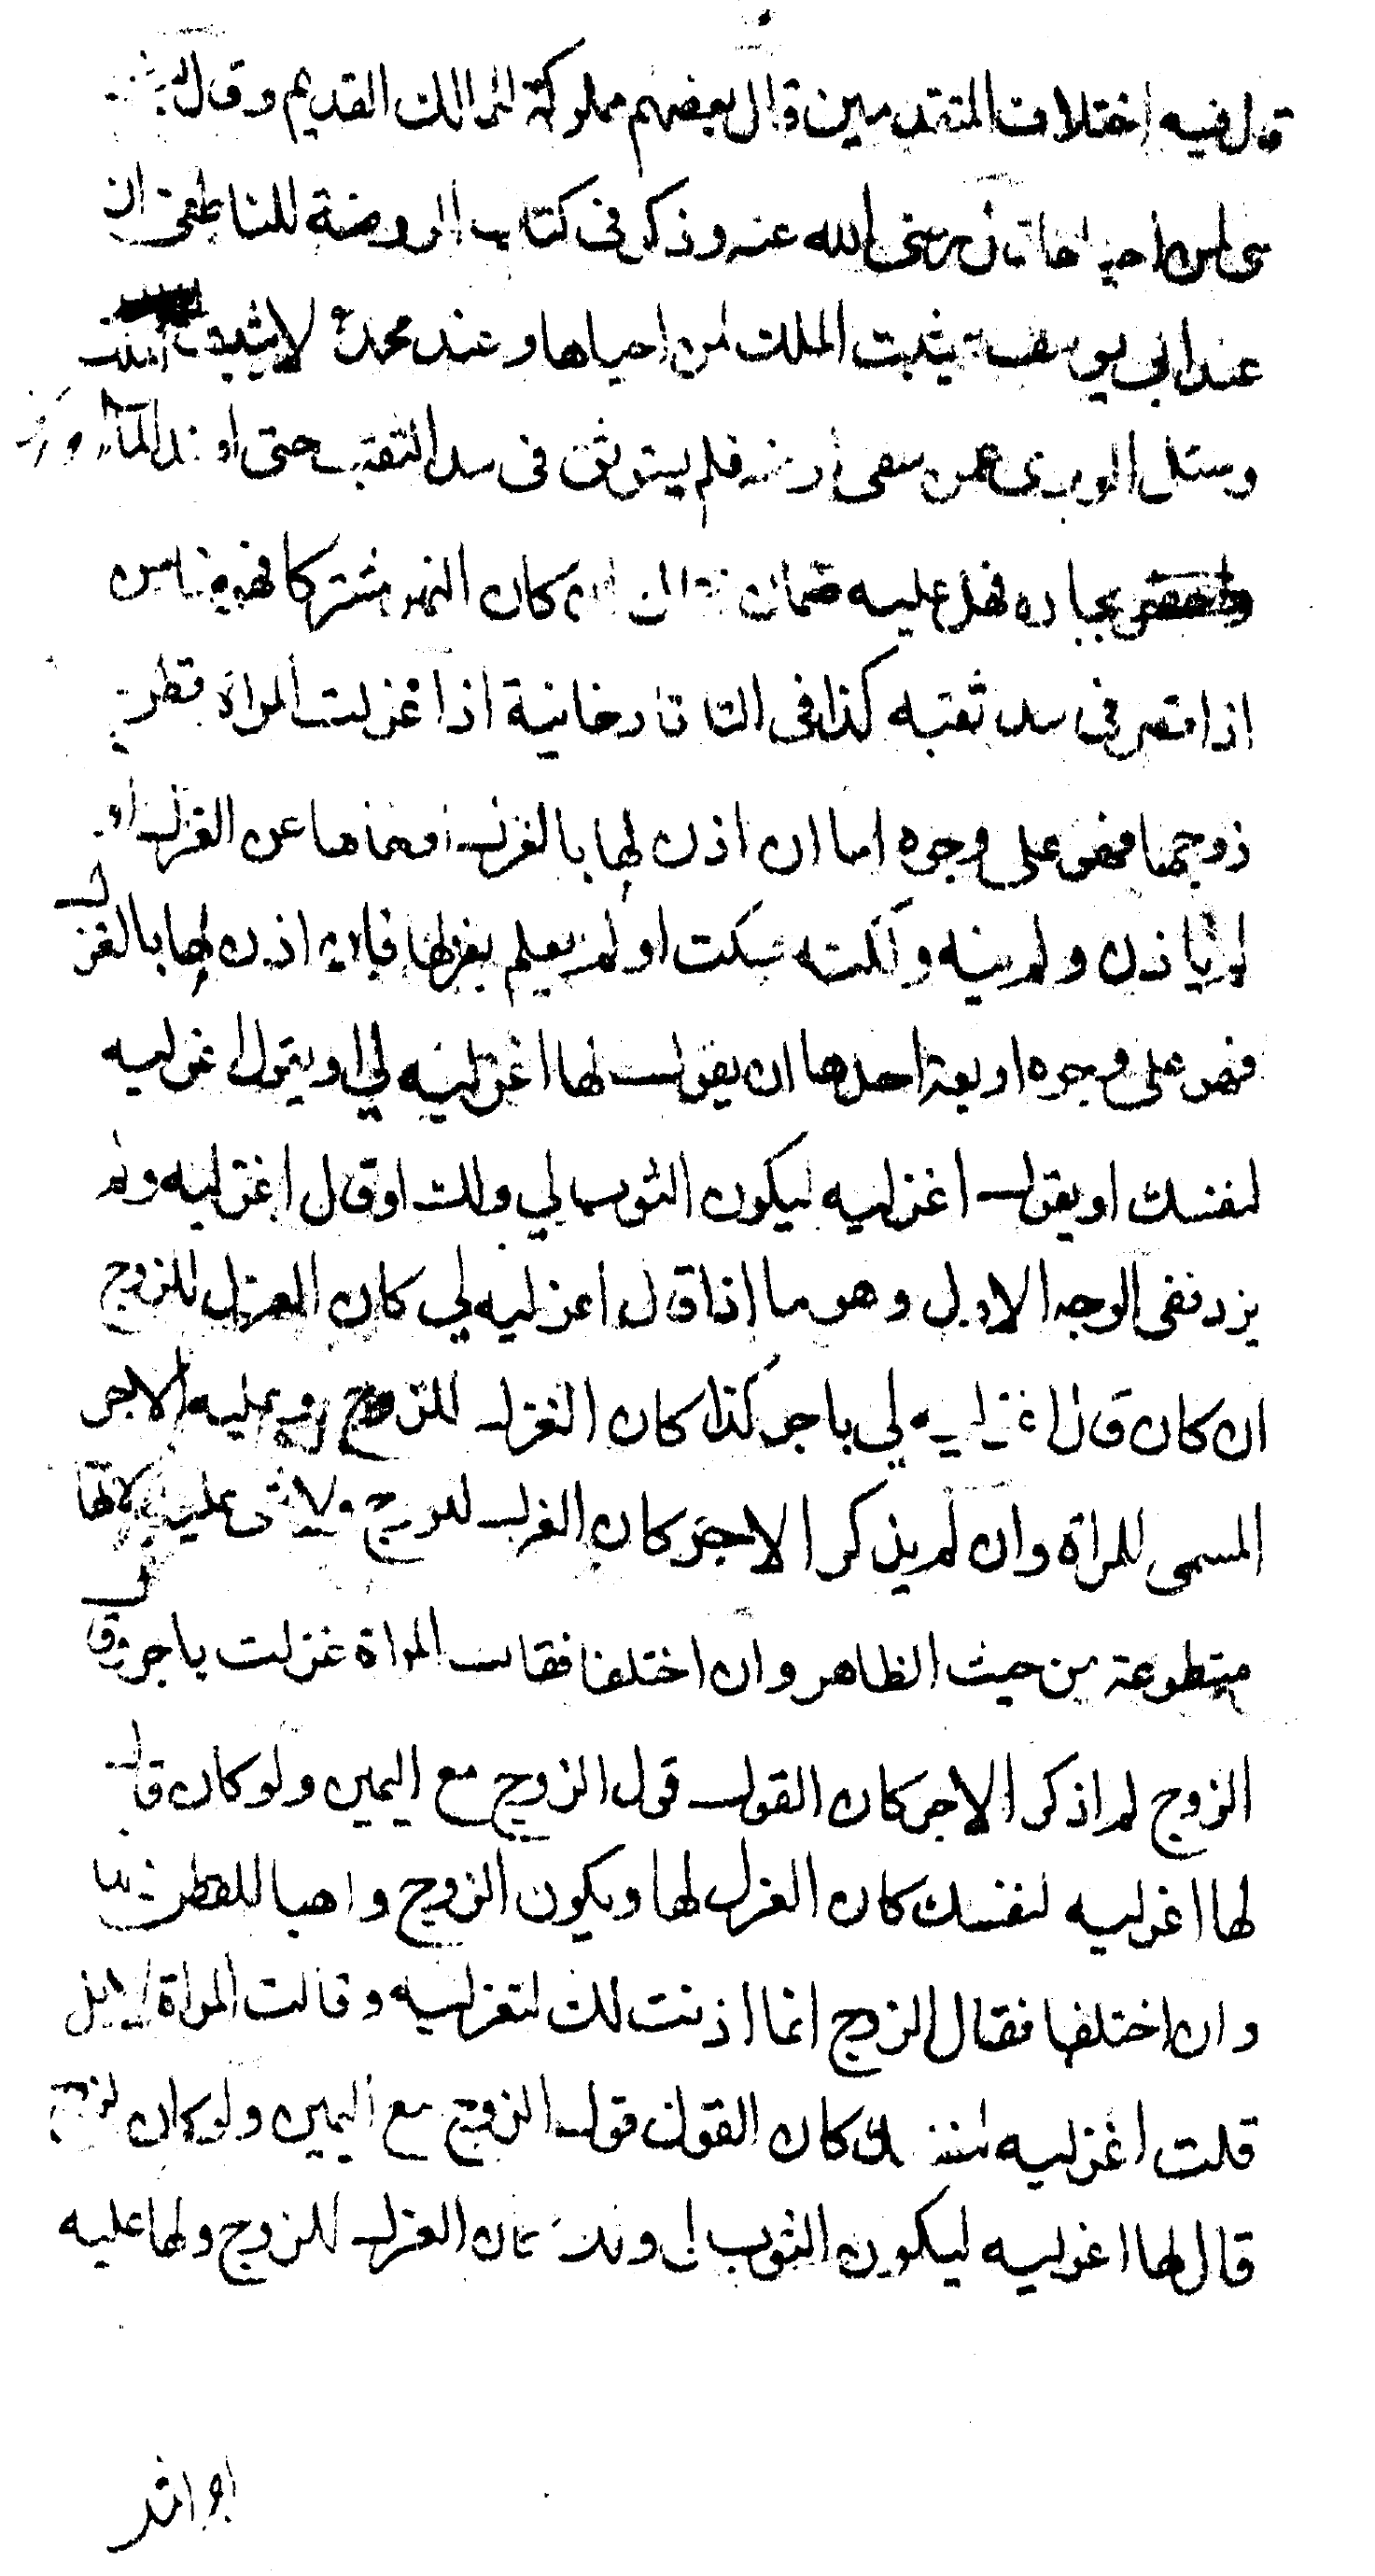 قال فيه اختلاف المتقدمين قال بعضهم مملوكة للمالك القديم وقال
لمن احيا رضى الله عنه وذكر في كتاب الروضة للناطفى ان
عند ابي يوسف يثبت الملك لمن احياها وعند محمد لا يثبت
وسئل عمن سقى ارضه فلم يستوثق فى سد الثقب حتى افسد الماء
بجاره فهل عليه ضمان قال ان كان النهر مشتركا فهو ضامن
اذا قصر فى سد ثقبه كذا فى التاتارخانية اذا غزلت المراة قطن
زوجها فهو على وجوه اما ان اذن لها بالغزل او نهاها عن الغزل او
لم ياذن ولم ينه ولكنه سكت او لم يعلم بغزلها فان اذن لها بالغزل
فهو على وجوه اربعة احدها ان يقول لها اغزليه لي او يقول اغزليه
لنفسك او يقول اغزليه ليكون الثوب لي ولك او قال اغزليه ولم
يزد ففى الوجه الاول وهو ما اذا قال اغزليه لي كان الغزل للزوج
ان كان قال اغزليه لي باجر كذا كان الغزل للزوج وعليه الاجر
المسمى للمراة وان لم يذكر الاجر كان الغزل للزوج ولا شى عليه لانها
متطوعة من حيث الظاهر وان اختلفا فقالت المراة غزلت باجر وقال
الزوج لم اذكر الاجر كان القول قول الزوج مع اليمين ولو كان قال
لها اغزليه لنفسك كان الغزل لها ويكون الزوج واهبا للقطن منها
وان اختلفا فقال الزوج انما اذنت لك لتغزليه وقالت المراة لا بل
قلت اغزليه لنفسك كان القول قول الزوج مع اليمين ولو كان الزوج
قال لها اغزليه ليكون الثوب لي ولك كان الغزل للزوج ولها عليه